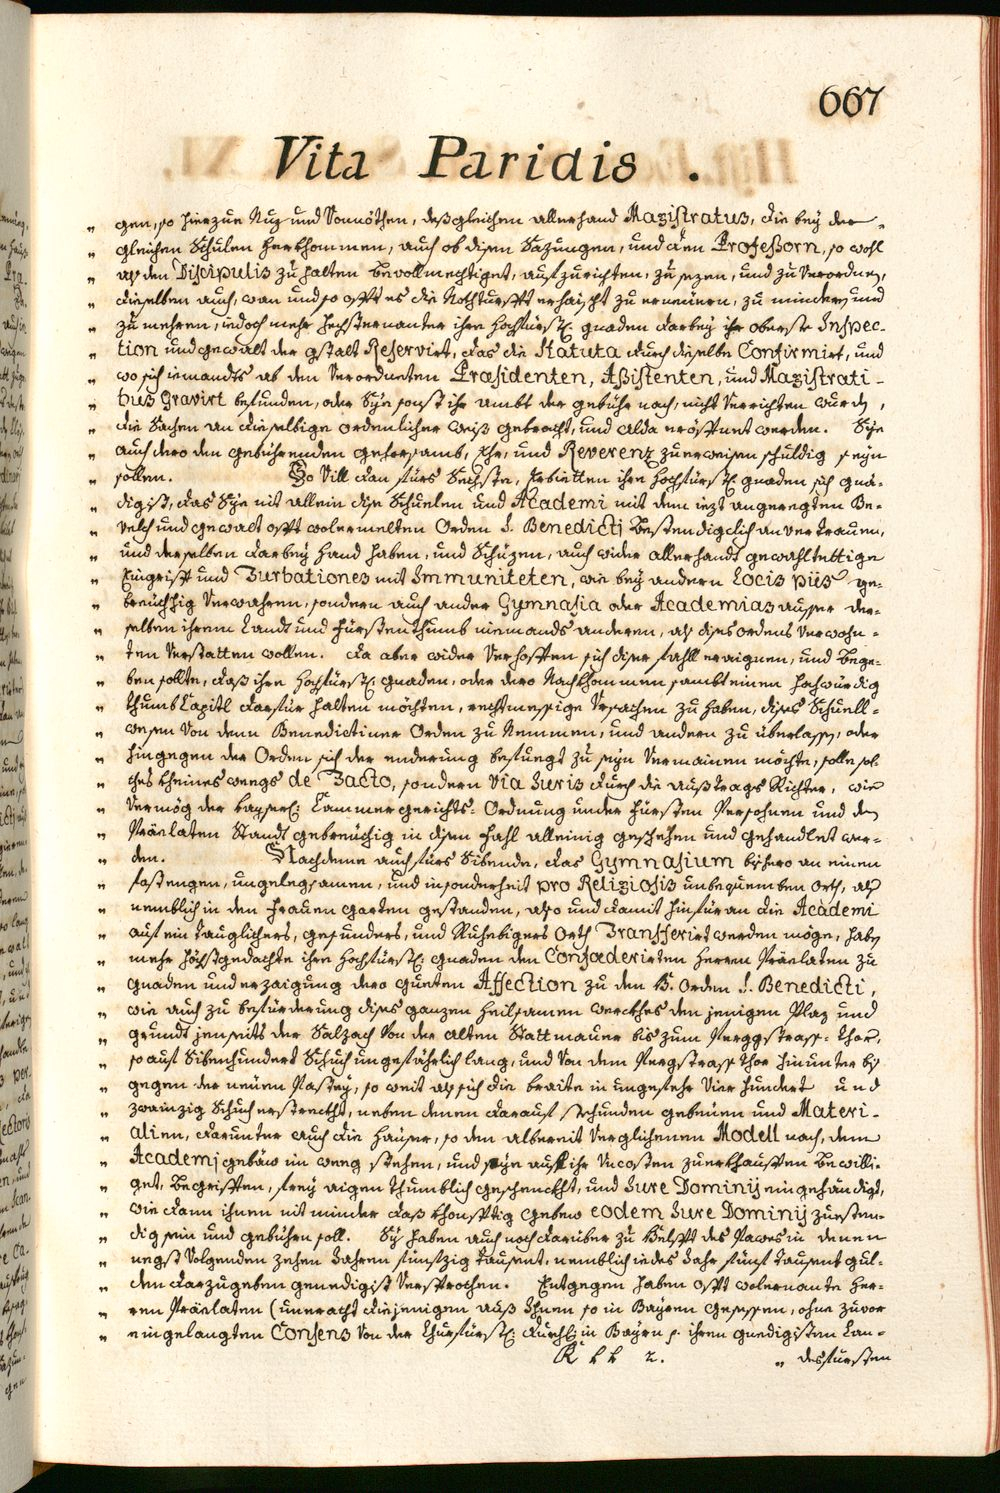 667
Vita Paridis.
„ gen, so hierzue Nuz und Vonnöthen, deßgleichen allerhand Magistratus, die bey der„
„ gleichen Schulen herkhommen, auch ob disen Sazungen, und den Profeßorn, so wohl
„ alß den Discipulis zu halten bevollmechtiget, aufzurichten, zu sezen, und zu Verordnen,
„ dieselben auch, wan und so offt es die Nothturfft erhaischt zu erneüern, zu mindern und
„ zu mehren, iedoch mehr höchsternanter ihre hochfürstl: gnaden darbey ihr oberste Inspec-
„ tion und gewalt der gstalt Reservirt, das die Statuta durch dieselbe Confirmirt, und
„ wo sich iemandts ab den Verordneten Præsidenten, Aßistenten, und Magistrati-
„ bus Gravirt befunden, oder Sye sonst ihr ambt der gebühr nach, nicht Verrichten wurden,
„ die Sachen an dieselbige ordenlicher weiß gebracht, und alda eröffnet werden. Sye
„ auch dero den gebührenden gehorsamb, Ehr, und Reverenz zuerweisen schuldig seyn
„ sollen. So Vill dan fürs Sechste, Erbietten ihre hochfürstl: gnaden sich gnä-
„ digist, das Sye nit allein dise Schuelen und Academi mit dem iezt angeregten Be-
„ velch und gewalt offt wolermelten Orden S. Benedicti bestendigclich anvertrauen,
„ und derselben darbey hand haben, und Schüzen, auch wider allerhandt gewahltettige
„ Eingriff und Turbationes mit Immuniteten, wie bey andern Locis piis ge-
„ breüchig Verwahren, sondern auch ander Gymnasia oder Academias ausser der-
„ selben ihrem Landt und fürstenthumb niemands anderen, alß dises ordens Verwohn-
„ ten Verstatten wollen. Da aber wider Verhoffen sich diser fahll eraignen, und bege-
„ ben sollte, daß ihre hochfürstl: gnaden, oder dero Nachkhommen sambt einen hochwürdig
„ thumb Capitl darfür halten möchten, rechtmessige Ursachen zu haben, dises Schuell-
„ wesen Von dem Benedictiner Orden zu Nemmen, und andern zu überlassen, oder
„ hingegen der Orden sich der enderung befuegt zu seyn Vermainen möchte, solle sol
„ ches kheines weegs de Facto, sondern Via Juris durch die außtrags Richter, wie
„ Vermög der kayserl: Cammergerichts-Ordnung under fürsten Persohnen und den
„ Präelaten Standt gebreüchig in disen fahl alleinig geschehen und gehandlet wer-
„ den. Nachdeme auch fürs Sibende, das Gymnasium bißhero an einen
„ fast engen, ungelegsamen, und insonderheit pro Religiosis unbequemben Orth, alß
„ nemblich in den frauen garten gestanden, also und damit hinfüran die Academi
„ auf ein tauglichers, gesunders, und Ruhebigers Orth Transferirt werden möge, haben
„ mehr höchstgedachte ihre hochfürstl: gnaden den Confœderirten herren Präelaten zu
„ gnaden und erzaigung dero gueten Affection zu den H. Orden S. Benedicti,
„ wie auch zu befürderung dises ganzen heilsamen werckhes den jenigen Plaz und
„ grundt jenseits der Salzach Von der alten Stattmauer bis zum Perggstrass-thor,
„ so auf Sibenhundert Schuch ungefährlich lang, und Von dem Pergstrass thor hinunter biß
„ gegen der neüen Pastey, so weit alß sich die braite in ungefehr Vier hundert und
„ zwainzig Schuch erstreckht, neben denen darauf stehunden gebeuen und Materi-
„ alien, darunter auch die heüser, so den albereit Verglichenen Modell nach, dem
„ Academi gebäw im weeg stehen, und sye auf ihr Uncosten zuerkhauffen bewilli-
„ get, begriffen, frey aigenthumblich geschenckht, und Jure Dominij eingehändigt,
„ wie dann ihnen nit minder daß khonfftig gebew eodem Jure Dominij zuesten-
„ dig sein und gebühren soll. Sy haben auch noch darüber zu hülff des Pawes in denen
„ negst Volgenden zehen Jahren fünfzig tausent, nemblich iedes Jahr fünf tausent gul-
„ den darzugeben genedigist Versprochen. Entgegen haben offt wolernante her-
„ ren Präelaten (uneracht diejenigen auß Ihnen so in Bayren gesessen, ohne zuvor
„ eingelangten Consens Von der Churfürstl: Durchl: in Bayrn p. ihren gnedigisten Lan-
R k k 2.
„ desfürsten